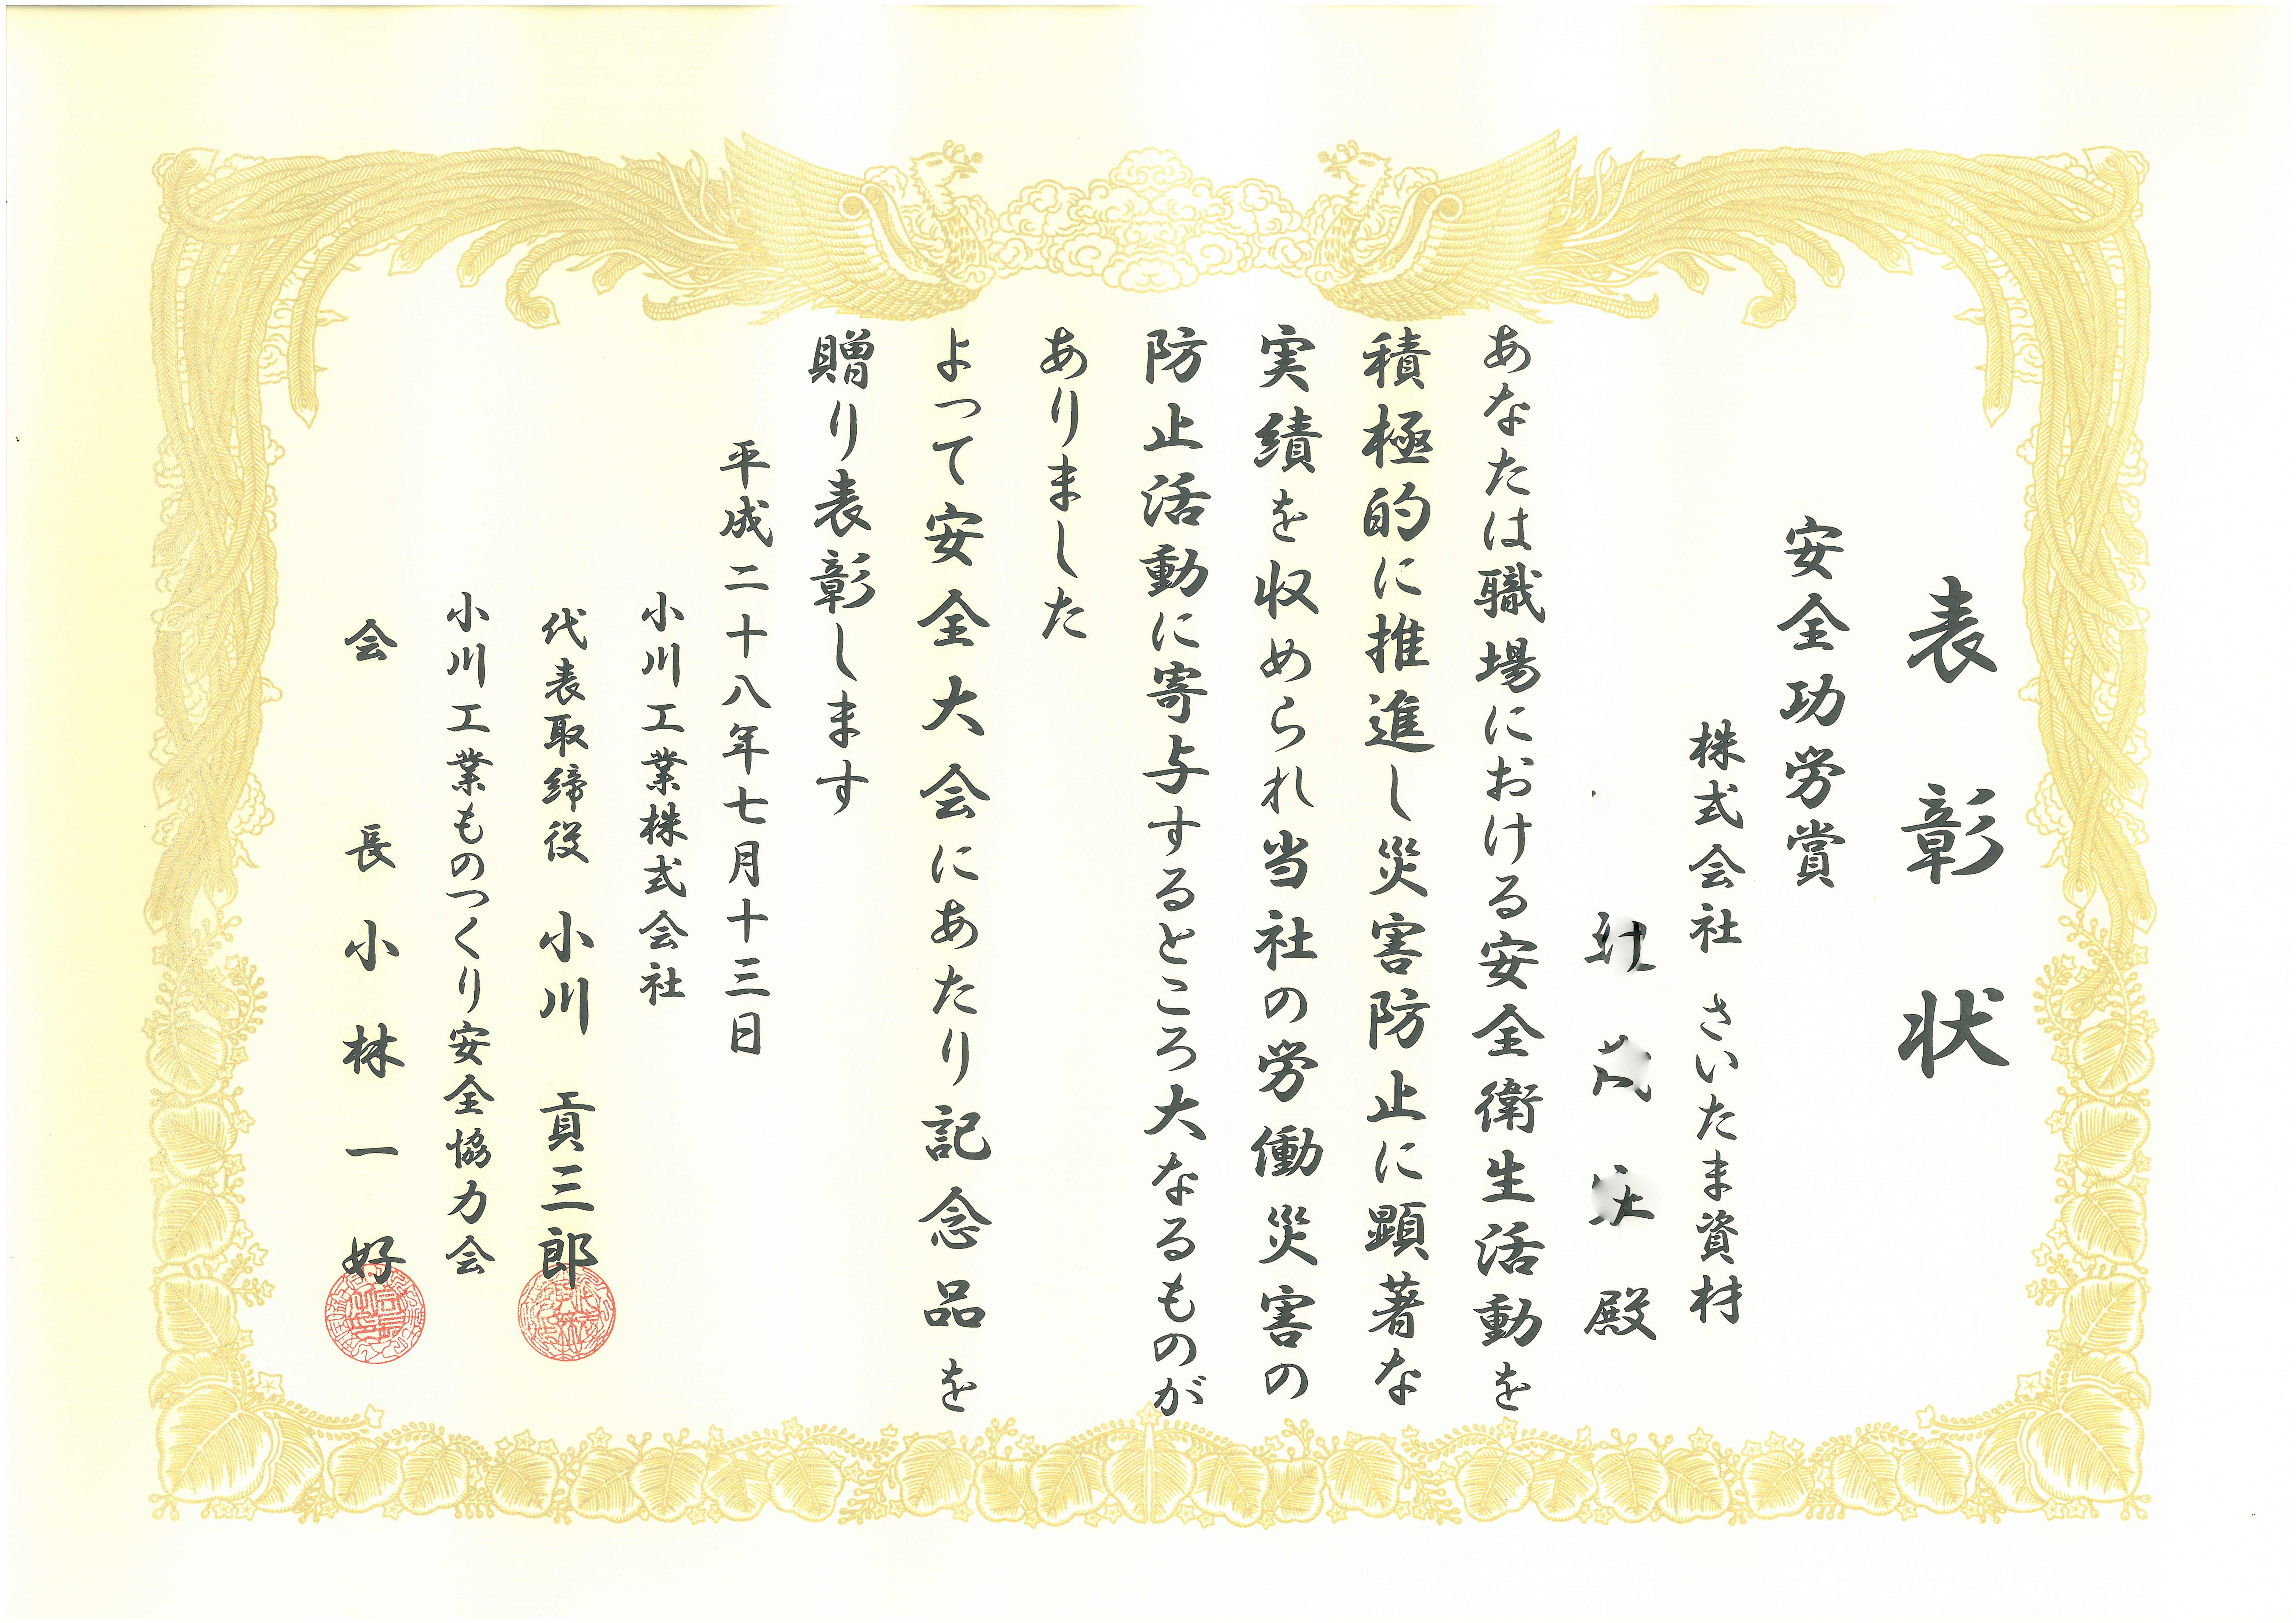 表彰状
安全功労賞
株式会社 さいたま資材
殿
あなたは職場における安全衛生活動を
積極的に推進し災害防止に顕著な
実績を収められ当社の労働災害の
防止活動に寄与するところ大なるものが
ありました
よって安全大会にあたり記念品を
贈り表彰します
平成二十八年七月十三日
小川工業株式会社
代表取締役 小川 貢三郎
小川工業ものつくり安全協力会
会長 小林一好